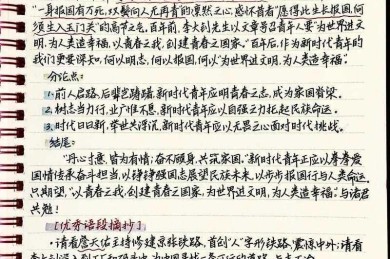 "一身报国有万死,双鬓向人无再青"的凛然之心,感怀昔者"愿得此生长报国,何
须生入玉门关"的高节之意。百年前,李大钊先生以文章号召青年人要"为世界进文
明,为人类造幸福,以青春之我,创建青春之国家。"百年后,作为新时代青年的
我们更要谨知,何以明志,何以报国,何以"为世界进文明,为人类造幸福。"
分论点:
1.前人启路,后辈当踌躇,新时代青年应明青春志,成为家国脊梁。
2.树志当力行,业广惟不息,新时代青年应以自强之力托起民族命运。
3.时代日日新,举世共浮沉,新时代青年应以无畏之心面对时代挑战。
结尾:
"丹心寸意,皆为有情;奋不顾身,共筑家国。"新时代青年正应以拳拳爱
国情怀秉奋斗担当,以铮铮强国志展望民族未来,以步步报国行与人类命运,
只期望,"以青春之我,创建青春之国家,为世界进文明,为人类造幸福。"与诸君
共勉!
[优秀语段摘抄]
·请看詹天佑主持修建京张铁路,首创"人"字形铁路,震惊中外;请看